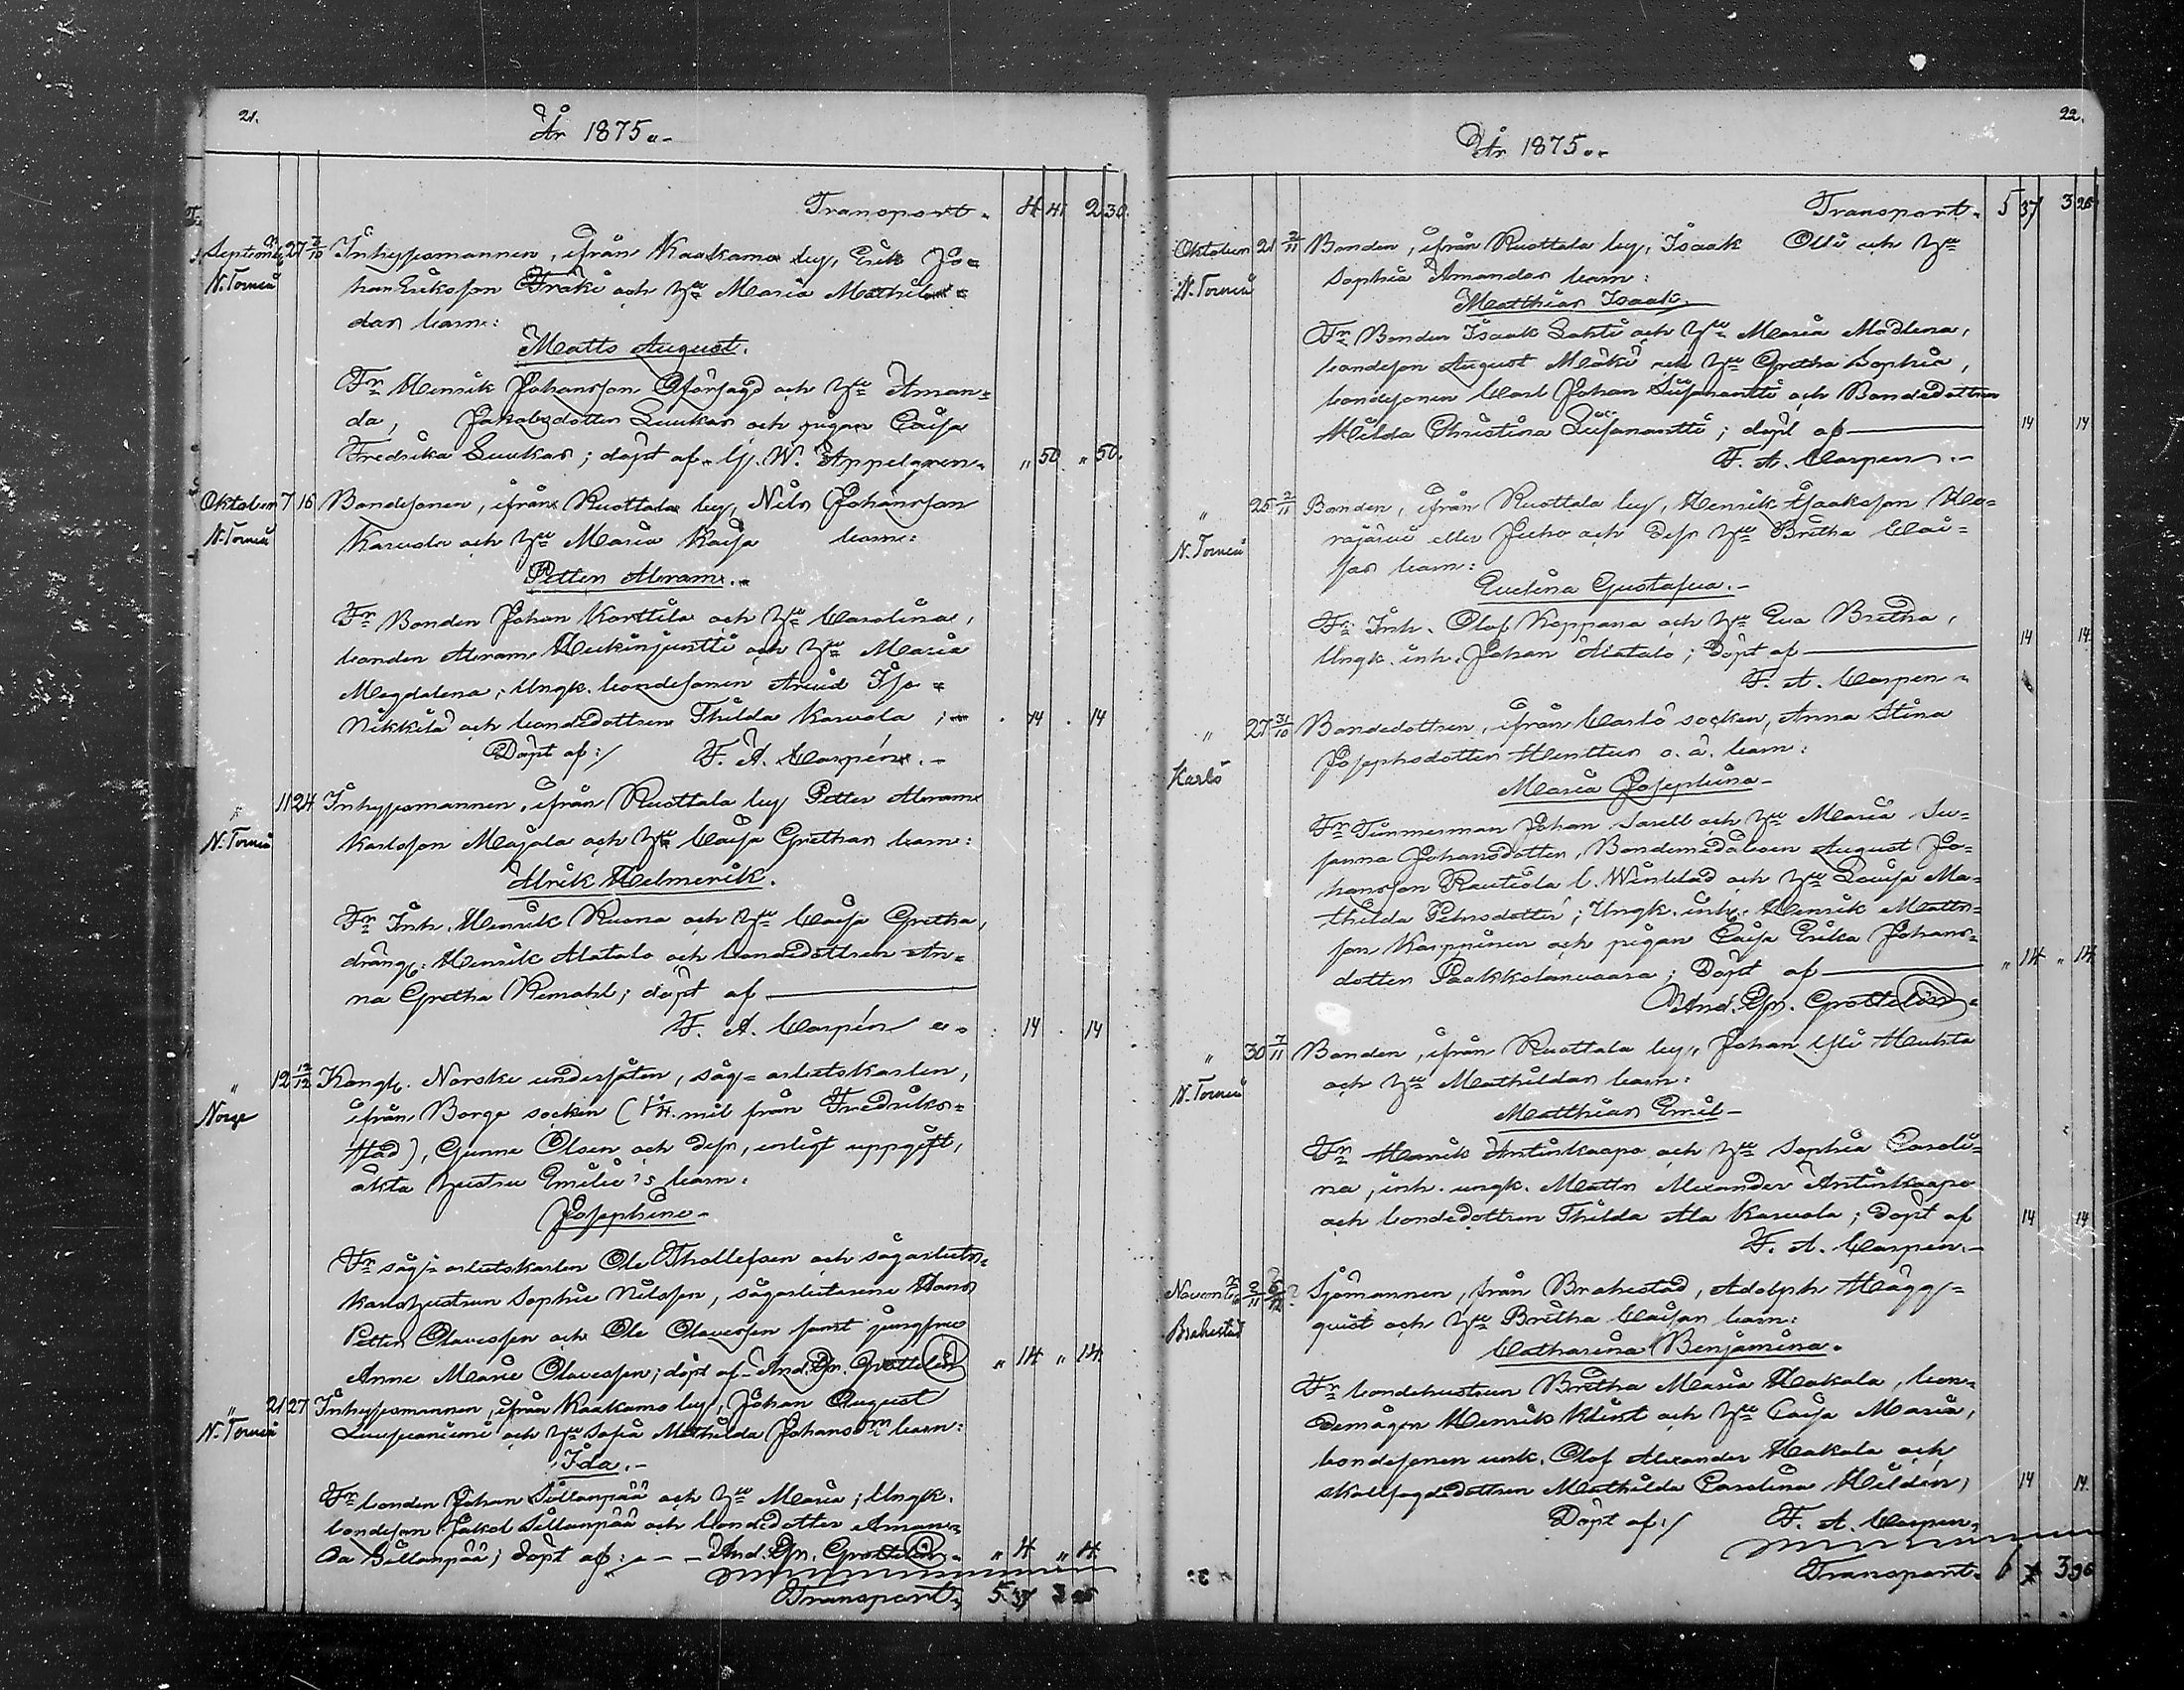 21.
År 1875.
Transport. 4 41 2 30.
September 27 2/10 Inhysesmannen, ifrån Kaakamo by, Erik Jo=
N. Torneå han Eriksson Fräki och h:u Maria Mathil=
das barn:
Matts August.
Fr Henrik Johansson Oförsagd och h:u Aman=
da, Jakobsdotter Luukas och pigan Caisa
Fredrika Luukas; döpt af G. W. Appelgren. „ 50. „ 50.
Oktober 7 16 Bondesonen, ifrån Ruottala by, Nils Johansson
N. Torneå Karvola och h:u Maria Kaisa barn:
Petter Abram.
Fr Bonden Johan Korttila och h:u Carolina,
bonden Abram Heikinjuntti och h:u Maria
Magdalena, Ungk. bondesonen Arvid Iso=
Nikkilä och bondedottren Thilda Karvola; 14 . 14
Döpt af:/ F. A. Carpén.
„ 11 24 Inhysesmannen, ifrån Ruottala by Petter Abram
N. Torneå Karlsson Majala och h:u Caisa Grethas barn:
Alrik Helmerik.
Fr Inh. Henrik Ruona och h:u Caisa Gretha,
dräng: Henrik Alatalo och bondedottren An=
na Gretha Remahl; döpt af
F. A. Carpén 14 . 14
„ 12 12/12 Kongl. Norske undersåten, såg=arbetskarlen,
Norge ifrån Borge socken (1/4. mil från Fredriks=
stad), Gunne Olsen och dess, enligt uppgift,
äkta hustru Emilie's barn:
Josephine
Fr såg=arbetskarlen Ole Thollefsen och sågarbets=
karlshustrun Sophie Nilssen, sågarbetarene Hans
Petter Olavessen och Ole Olavessen samt jungfru
Anne Marie Olavessen; döpt af And. Gr. Grottelin „ 14 „ 14.
„ 21 27 Inhysesmannen, ifrån Kaakamo by, Johan August
N. Torneå och h:u Sofia Mathilda Johans barn:
Ida.
Fr bonden Johan Sillanpää och h:u Maria; Ungk.
bondeson Jakob Sillanpää och bondedotter Aman=
da Sillanpää; döpt af: And. Gr. Grottelin. „ 14 „ 14.
Transport. 5 37 3 26
22.
År 1875.
Transport. 5 37 3 26
Oktober 21 2/11 Bonden, ifrån Ruottala by, Isaak Olli och h:u
N. Torneå Sophia Amandas barn:
Matthias Isaak.
Fr Bonden Isaak Lahti och h:u Maria Madlena,
bondeson August Mäki och h:u Gretha Sophia,
bondesonen Carl Johan Liisanantti och Bondedottren
Hilda Christina Liisanantti; döpt af 14 14
F. A. Carpen.
„ 25 2/11 Bonden, ifrån Ruottala by, Henrik Isaaksson
N. Torneå eller Juho och dess h:u Bretha Cai=
sas barn:
Evelina Gustafva.
Fr Inh. Olof Koppana och h:u Eva Bretha,
Ungk. inh. Johan Alatalo; Döpt af 14 14
F. A. Carpen
„ 27 31/10 Bondedottren, ifrån Carlö socken, Anna Stina
Karlö Josephsdotter Henttus o. ä. barn:
Maria Josephina
Fr Timmerman Johan Sarell och h:u Maria Su=
sanna Johansdotter, Bondemågen August Jo=
hansson Rautiola l. Winblad och h:u Lovisa Ma=
thilda Petersdotter; Ungk. inh. Henrik Matts=
son Karppinen och pigan Caisa Erika Johans=
dotter Paakkolanvaara; Döpt af „ 14 „ 14
And. Gr. Grottelin.
„ 30 7/11 Bonden, ifrån Ruottala by, Johan Yli Huhta
N. Torneå och h:u Mathildas barn:
Matthias Emil
Fr Henrik Antinkaapo och h:u Sophia Caroli=
na, inh. ungk. Matts Alexander Antinkaapo
och bondedottren Thilda Ala Karvola; Döpt af 14 14
F. A. Carpen.
Novemb. 2/11 5/12? Sjömannen, från Brahestad, Adolph Hägg=
Brahestad quist och h:u Bretha Caisas barn:
Catharina Benjamina.
Fr bondehustrun Bretha Maria Hakala, bon=
demågen Henrik Klint och h:u Caisa Maria,
bondesonen unk. Olof Alexander Hakala och
skallfogdedottren Mathilda Carolina Heldén, 14 14.
Döpt af:/ F. A. Carpen.
Transport. 6 7 3 96